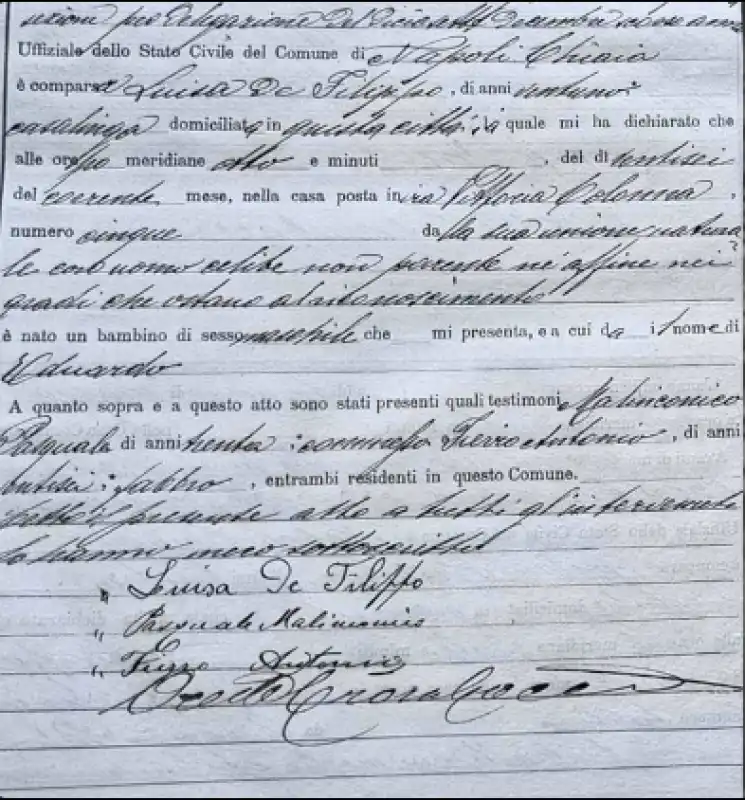 sezioni per delegazione del diciotto Decembre
Uffiziale dello Stato Civile del Comune di Napoli Chiaia
è comparsa Luisa De Filippo, di anni ventuno
casalinga domiciliata in questa città, la quale mi ha dichiarato che
alle ore po meridiane otto e minuti , del dì ventisei
del corrente mese, nella casa posta in via Vittoria Colonna,
numero cinque da la sua unione natura
le con uomo celibe non parente nè affine nei
gradi che ostano al riconoscimento
è nato un bambino di sesso maschile che mi presenta, e a cui dà il nome di
Eduardo
A quanto sopra e a questo atto sono stati presenti quali testimoni Malinconico
Pasquale di anni trenta Fierro Antonio, di anni
fabbro, entrambi residenti in questo Comune.
Letto il presente atto a tutti gl'intervenuti
lo hanno meco sottoscritto
" Luisa De Filippo
" Pasquale Malinconico
" Fierro Antonio